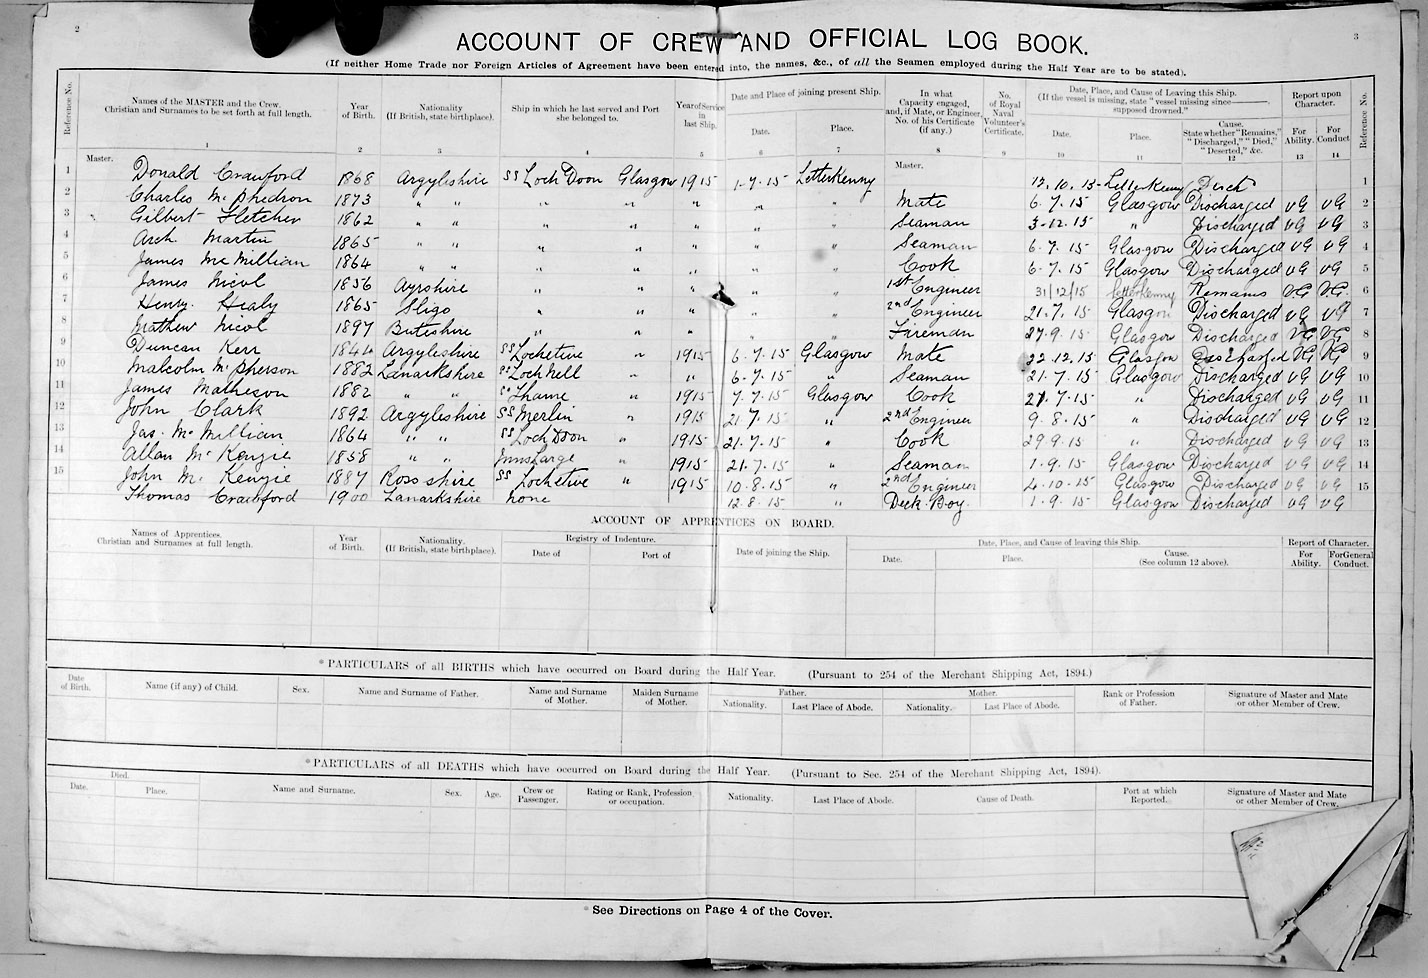 2
3
ACCOUNT OF CREW AND OFFICIAL LOG BOOK.
(If neither Home Trade nor Foreign Articles of Agreement have been entered into, the names, &c., of all the Seamen employed during the Half Year are to be stated).
Reference No. Names of the MASTER and the Crew. Christian and Surnames to be set forth at full length. Year of Birth. Nationality (If British, state birthplace). Ship in which he last served and Port she belonged to. Year of Service in last Ship. Date and Place of joining present Ship. Date. Place. In what Capacity engaged, and, if Mate, or Engineer, No. of his Certificate (if any.) No. of Royal Naval Volunteer's Certificate. Date, Place, and Cause of Leaving this Ship. (If the vessel is missing, state "vessel missing since——, supposed drowned.") Date. Place. Cause. State whether "Remains," "Discharged," "Died," "Deserted," &c. Report upon Character. For Ability. For Conduct Reference No.
1 2 3 4 5 6 7 8 9 10 11 12 13 14
Master. Master.
1 Donald Crawford 1868 Argyleshire SS Loch Doon Glasgow 1915 1.7.15 Letterkenny 12.10.15 Letterkenny Disch 1
2 Charles McPhedron 1873 " " " " " " " Mate 6.7.15 Glasgow Discharged VG VG 2
3 Gilbert Fletcher 1862 " " " " " " " Seaman 3-12.15 " Discharged VG VG 3
4 Arch. Martin 1865 " " " " " " " Seaman 6.7.15 Glasgow Discharged VG VG 4
5 James McMillian 1864 " " " " " " " Cook 6.7.15 Glasgow Discharged VG VG 5
6 James Nicol 1856 Ayrshire " " " " " 1st Engineer 31/12/15 Letterkenny Remains VG VG 6
7 Henry Healy 1865 Sligo " " " " " 2nd Engineer 21.7.15 Glasgow Discharged VG VG 7
8 Mathew Nicol 1897 Buteshire " " " " " Fireman 27.9.15 Glasgow Discharged VG VG 8
9 Duncan Kerr 1844 Argyleshire SS Lochetive " 1915 6.7.15 Glasgow Mate 22.12.15 Glasgow Discharged VG VG 9
Malcolm McPherson 1882 Lanarkshire SS Loch Nell " " 6.7.15 " Seaman 21.7.15 Glasgow Discharged VG VG 10
10 James Matheson 1882 " " SS Thame " 1915 7.7.15 Glasgow Cook 21.7.15 " Discharged VG VG 11
11 John Clark 1892 Argyleshire SS Merlin " 1915 21.7.15 " 2nd Engineer 9.8.15 " Discharged VG VG 12
12 Jas. McMillian 1864 " " SS Loch Doon " 1915 21.7.15 " Cook 29.9.15 " Discharged VG VG 13
13 Allan McKenzie 1858 " " Innislarge " 1915 21.7.15 " Seaman 1.9.15 Glasgow Discharged VG VG 14
14 John McKenzie 1887 Rosshire SS Lochetive " 1915 10.8.15 " 2nd Engineer 4.10.15 Glasgow Discharged VG VG 15
15 Thomas Crawford 1900 Lanarkshire none 12.8.15 " Deck Boy. 1.9.15 Glasgow Discharged VG VG
ACCOUNT OF APPRENTICES ON BOARD.
Names of Apprentices. Christian and Surnames at full length. Year of Birth. Nationality. (If British, state birthplace). Registry of Indenture. Date of Port of Date of joining the Ship. Date, Place, and Cause of leaving this Ship. Date. Place. Cause. (See column 12 above). Report of Character. For Ability. For General Conduct.
*PARTICULARS of all BIRTHS which have occurred on Board during the Half Year. (Pursuant to 254 of the Merchant Shipping Act, 1894.)
Date of Birth. Name (if any) of Child. Sex. Name and Surname of Father. Name and Surname of Mother. Maiden Surname of Mother. Father. Nationality. Last Place of Abode. Mother. Nationality. Last Place of Abode. Rank or Profession of Father. Signature of Master and Mate or other Member of Crew.
*PARTICULARS of all DEATHS which have occurred on Board during the Half Year. (Pursuant to Sec. 254 of the Merchant Shipping Act, 1894).
Died. Date. Place. Name and Surname. Sex. Age. Crew or Passenger. Rating or Rank, Profession or occupation. Nationality. Last Place of Abode. Cause of Death. Port at which Reported. Signature of Master and Mate or other Member of Crew.
*See Directions on Page 4 of the Cover.